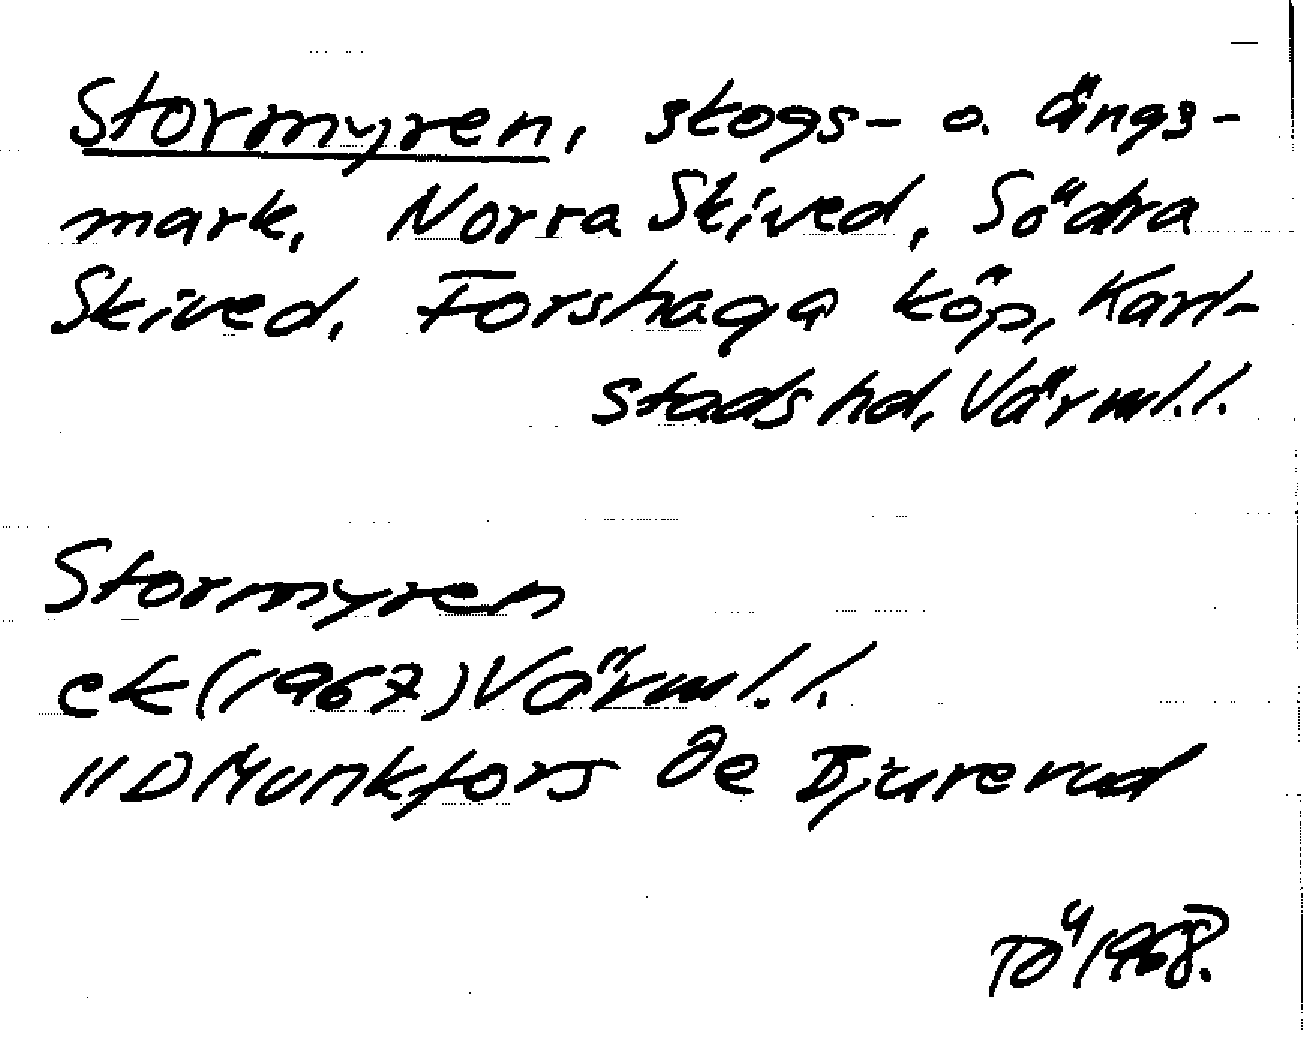 Stormyren, skogs- o. ängs-
mark, Norra Skived, Södra
Skived, Forshaga köp, Karl-
stads hd, Värml. l.
Stormyren
ek (1967) Värml. l.
11D Munkfors 0e Djurerud
Tö 1968.